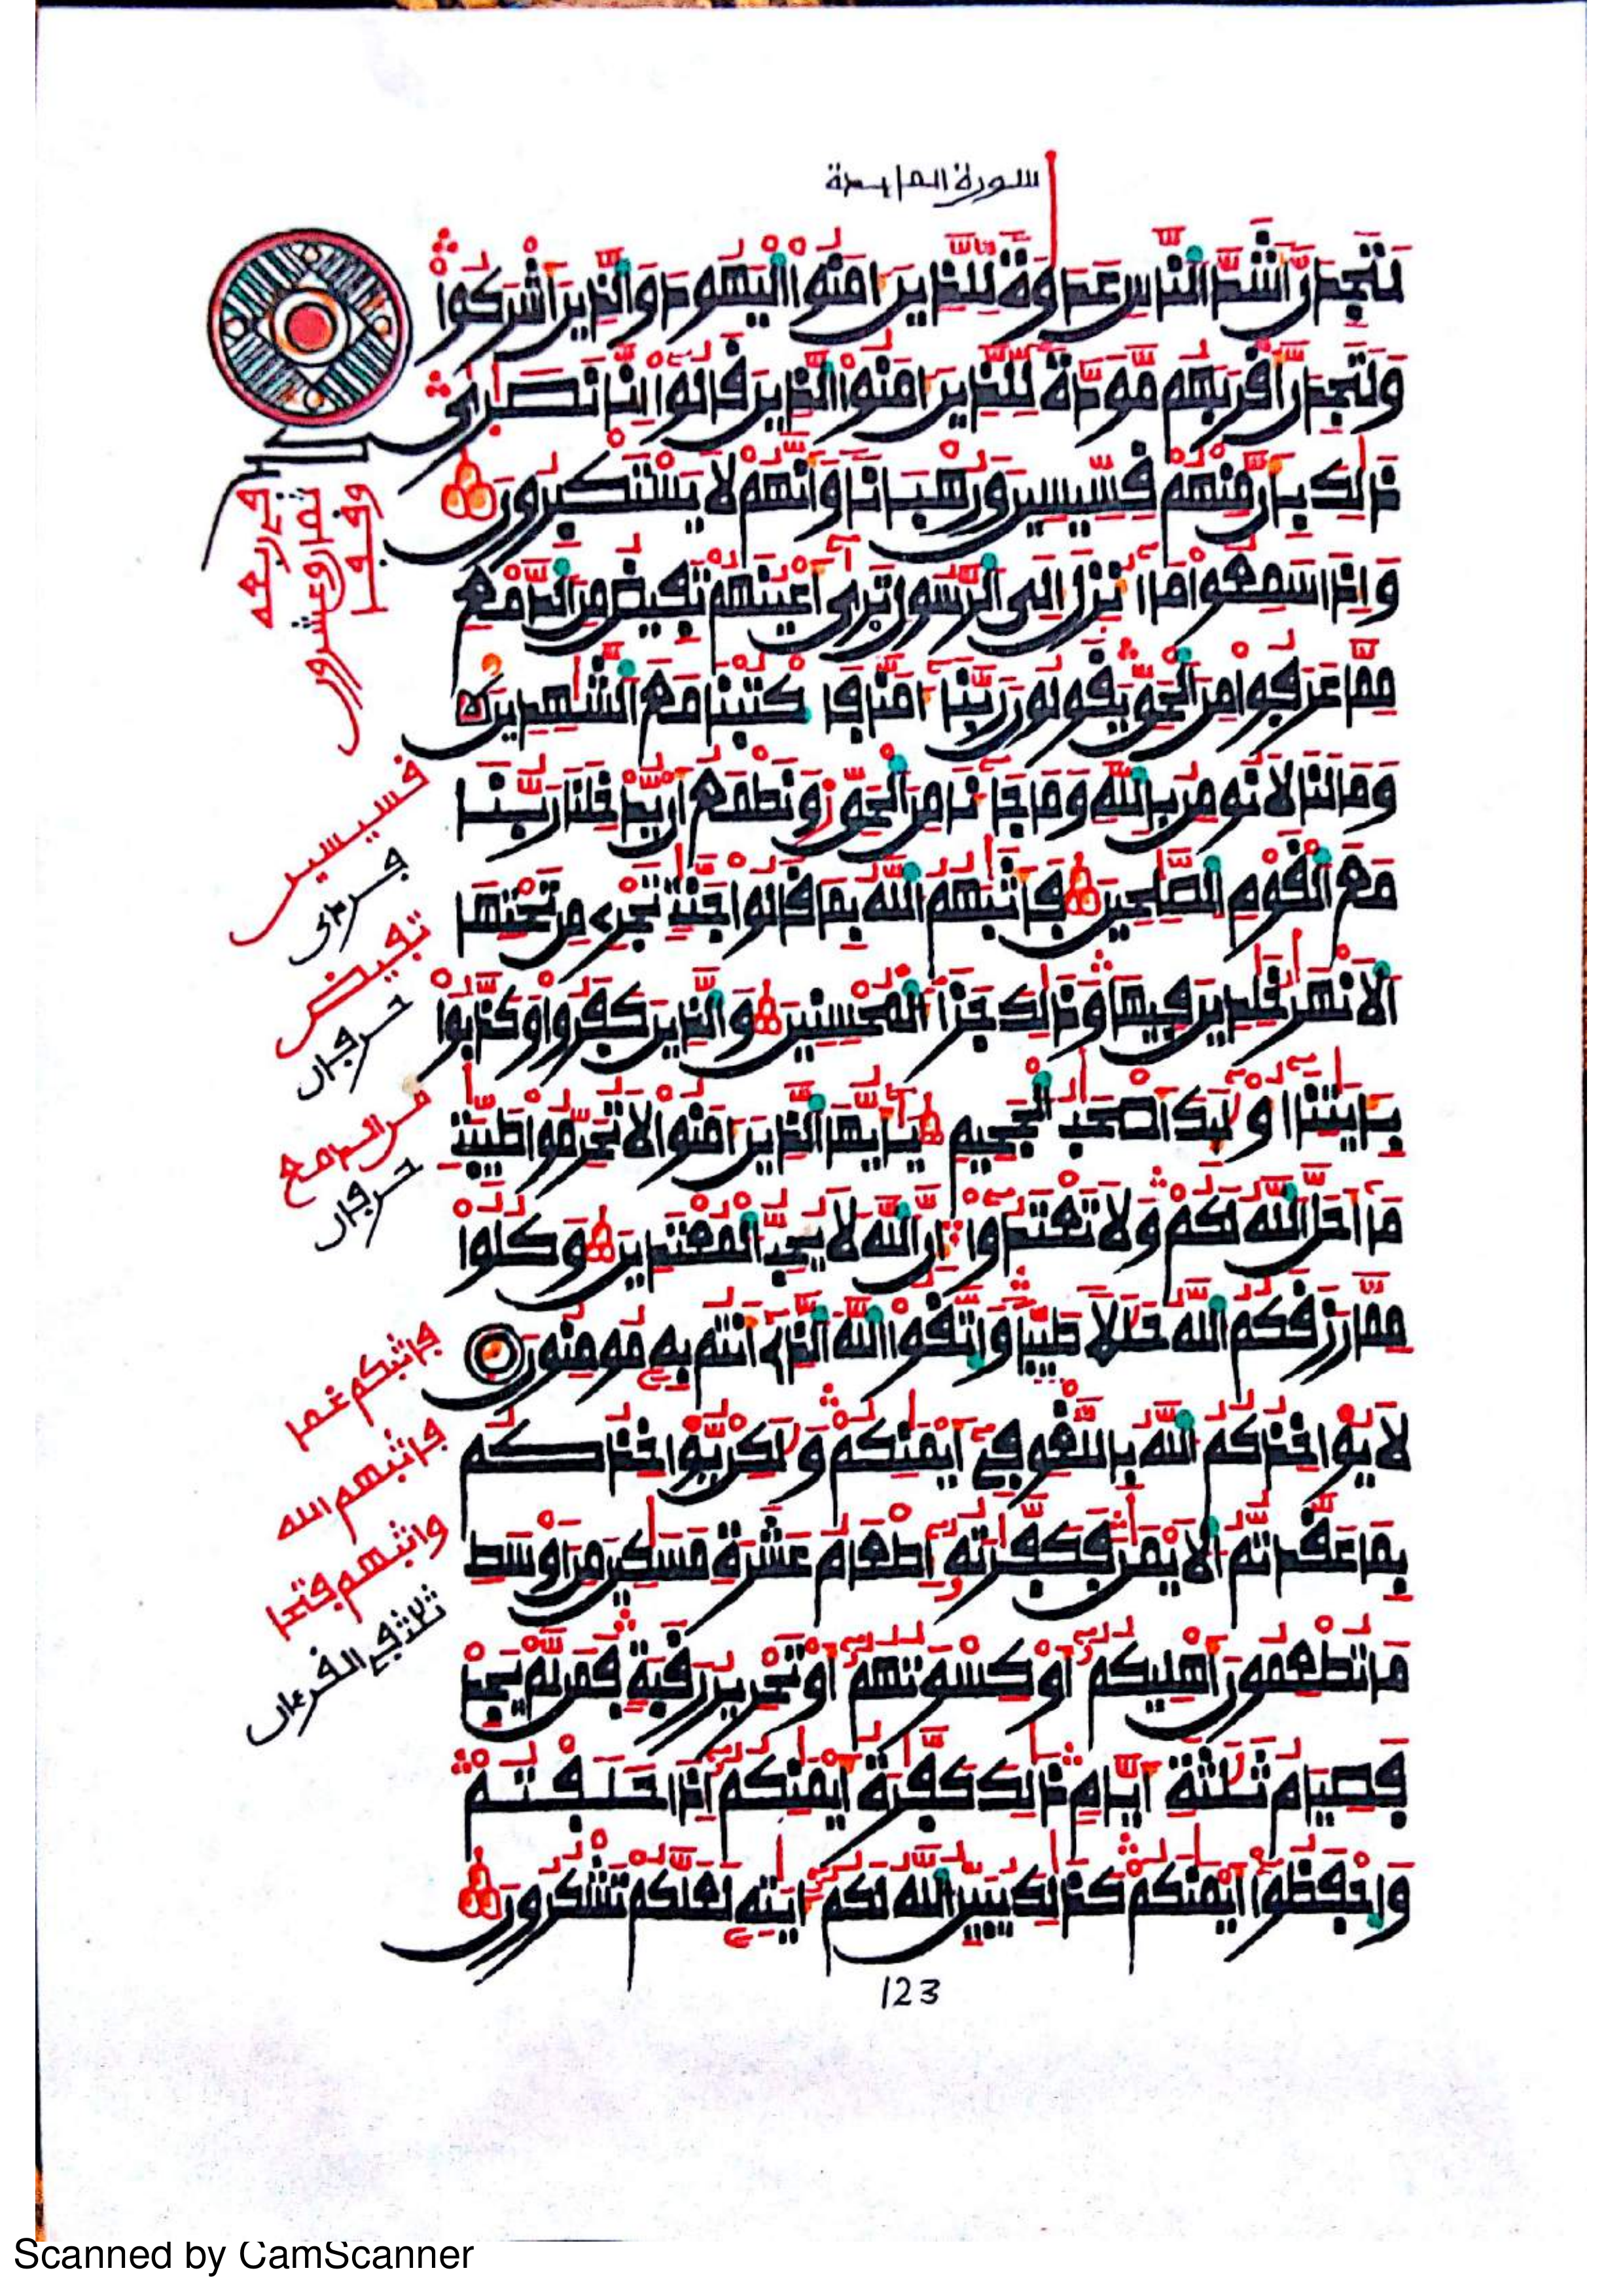 سورة المايدة
لتجدن أشد الناس عدوة للذين ءامنوا اليهود والذين أشركوا
ولتجدن أقربهم مودة للذين ءامنوا الذين قالوا إنا نصرى
ذلك بأن منهم قسيسين ورهبانا وأنهم لا يستكبرون
وإذا سمعوا ما أنزل إلى الرسول ترى أعينهم تفيض من الدمع
مما عرفوا من الحق يقولون ربنا ءامنا فاكتبنا مع الشهدين
وما لنا لا نومن بالله وما جاءنا من الحق ونطمع أن يدخلنا ربنا
مع القوم الصلحين فأثبهم الله بما قالوا جنت تجري من تحتها
الأنهر خلدين فيها وذلك جزاء المحسنين والذين كفروا وكذبوا
بـايتنا أولـيك أصحب الجحيم يـأيها الذين ءامنوا لا تحرموا طيبت
ما أحل الله لكم ولا تعتدوا إن الله لا يحب المعتدين وكلوا
مما رزقكم الله حللا طيبا واتقوا الله الذي أنتم به مومنون
لا يواخذكم الله باللغو في أيمنكم ولكن يواخذكم
بما عقدتم الأيمن فكفرته إطعام عشرة مسكين من أوسط
ما تطعمون أهليكم أو كسوتهم أو تحرير رقبة فمن لم يجد
فصيام ثلثة أيام ذلك كفرة أيمنكم إذا حلفتم
واحفظوا أيمنكم كذلك يبين الله لكم ءايته لعلكم تشكرون
قسيسين
تفيض
حرفان
من الدمع
حرفان
فاثبكم غما
فاثبهم الله
واثبهم فتحا
ثلاث في القرءان
123
Scanned by CamScanner